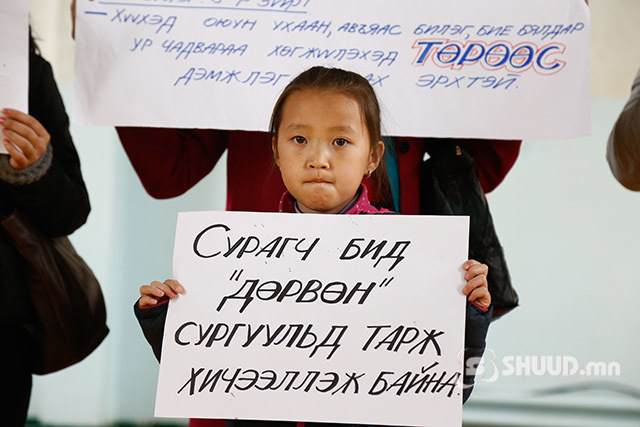 ХҮҮХЭД ОЮУН УХААН, АВЪЯАС БИЛЭГ, БИЕ БЯЛДАР
УР ЧАДВАРАА ХӨГЖҮҮЛЭХЭД ТӨРӨӨС
ДЭМЖЛЭГ АХ ЭРХТЭЙ.
СУРАГЧ БИД
"ДӨРВӨН"
СУРГУУЛЬД ТАРЖ
ХИЧЭЭЛЛЭЖ БАЙНА.
SHUUD.mn